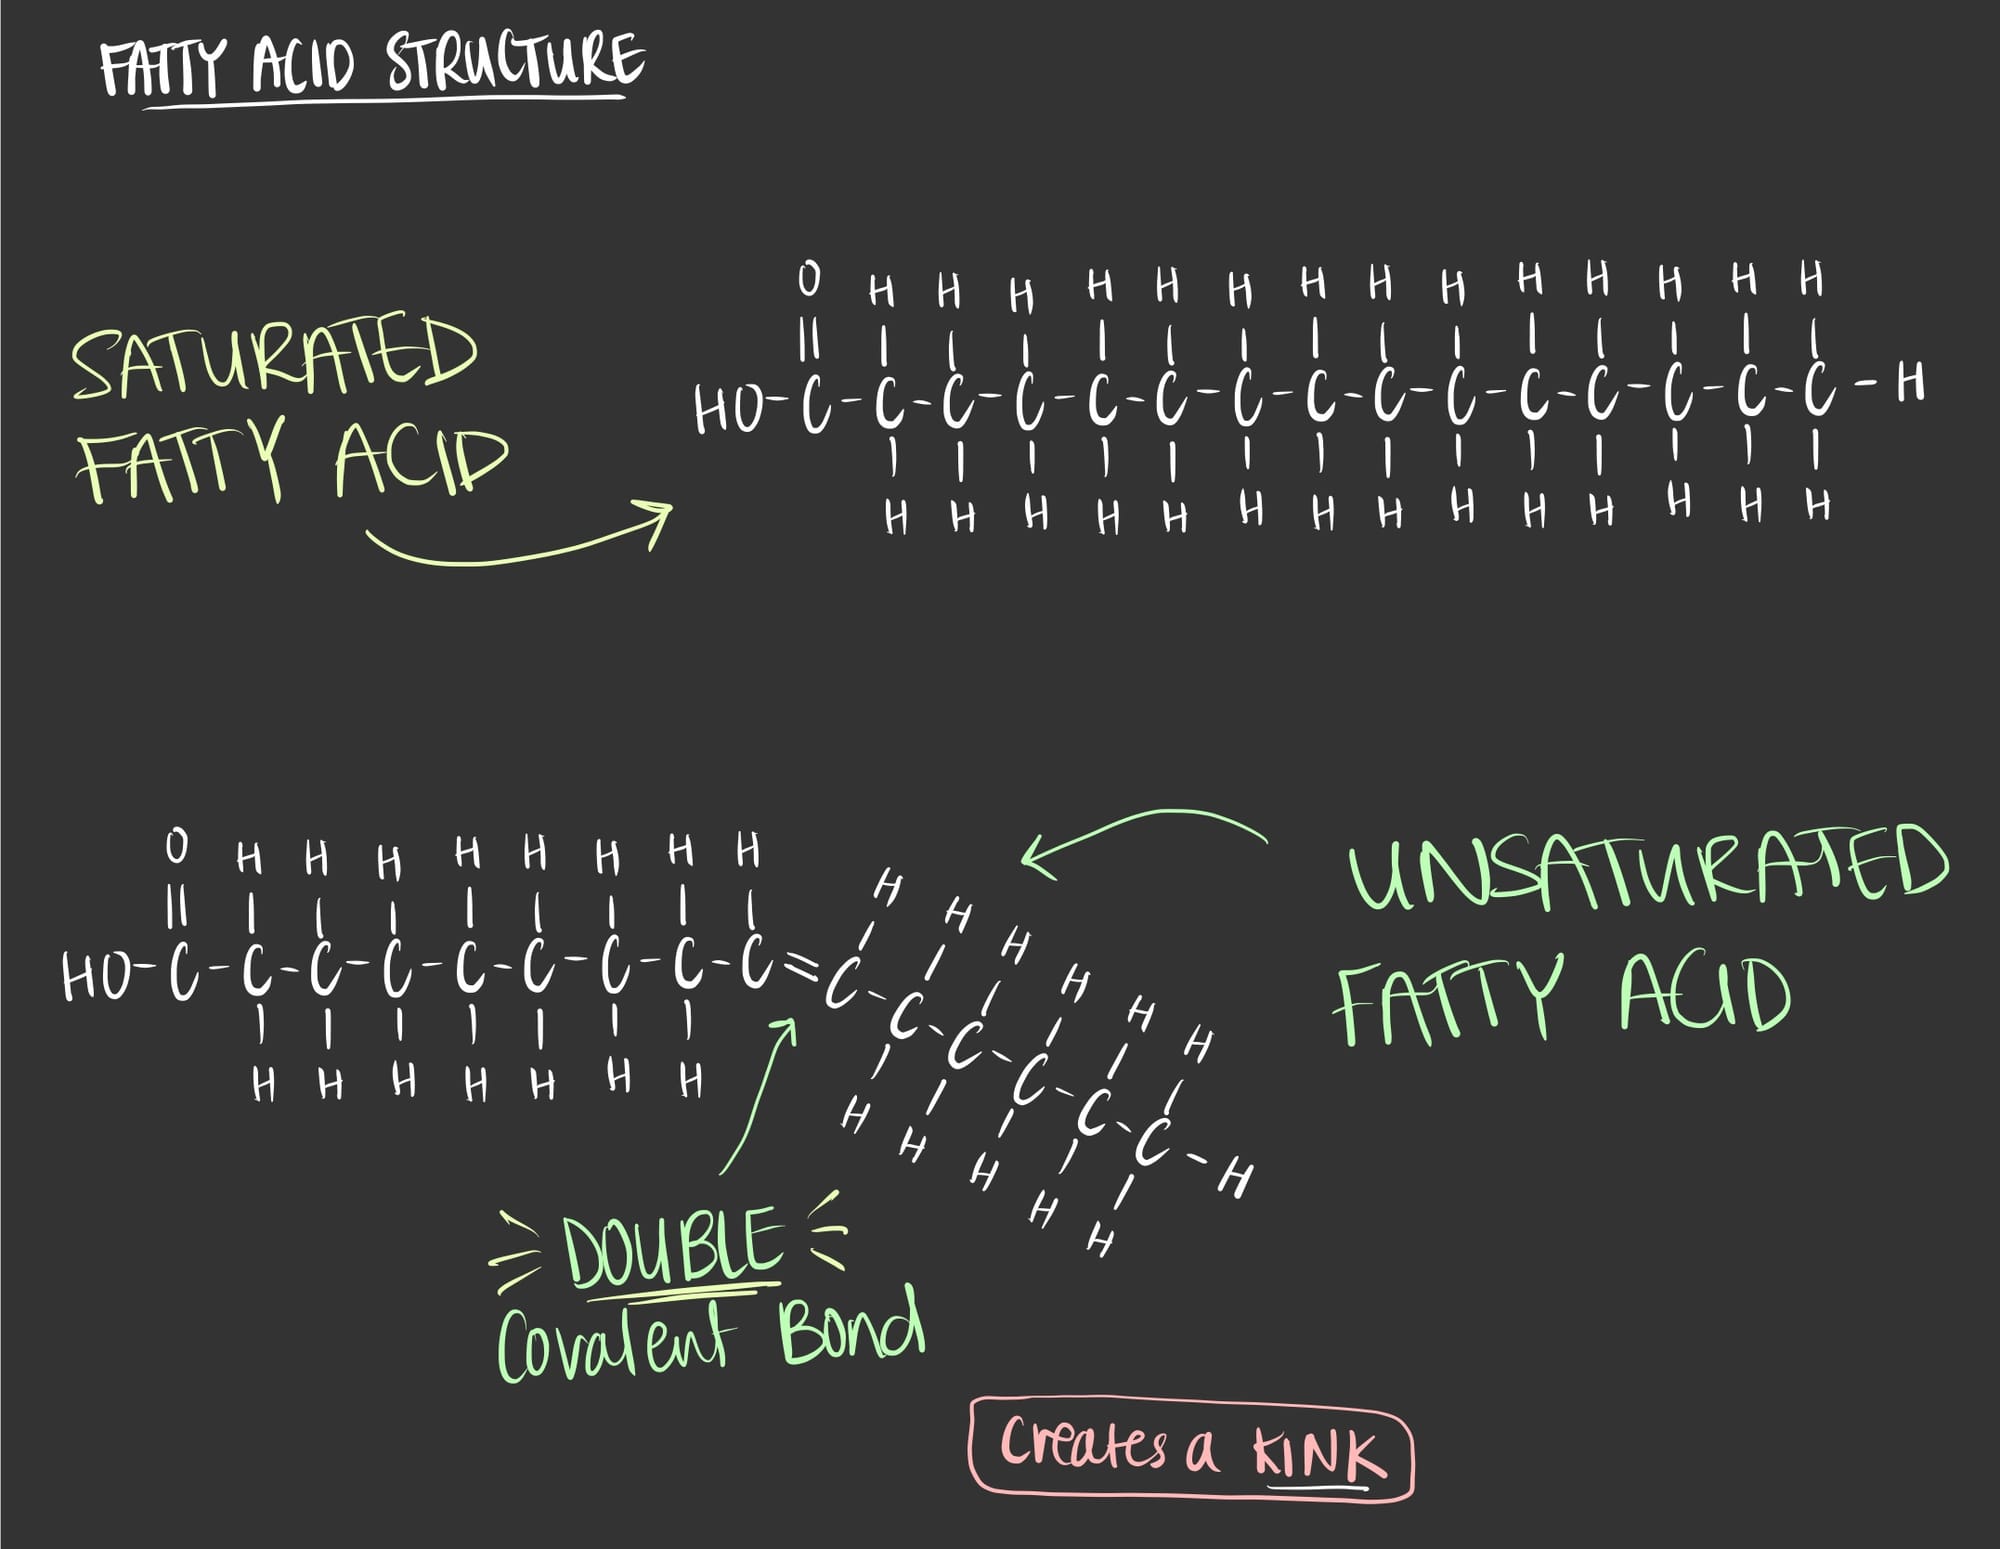 FATTY ACID STRUCTURE
SATURATED
FATTY ACID
O H H H H H H H H H H H H H H
HO-C-C-C-C-C-C-C-C-C-C-C-C-C-C-C-H
H H H H H H H H H H H H H H
UNSATURATED
FATTY ACID
O H H H H H H H H H H H H H H
HO-C-C-C-C-C-C-C-C-C=C-C-C-C-C-C-H
H H H H H H H H H H H H
DOUBLE
Covalent Bond
Creates a KINK